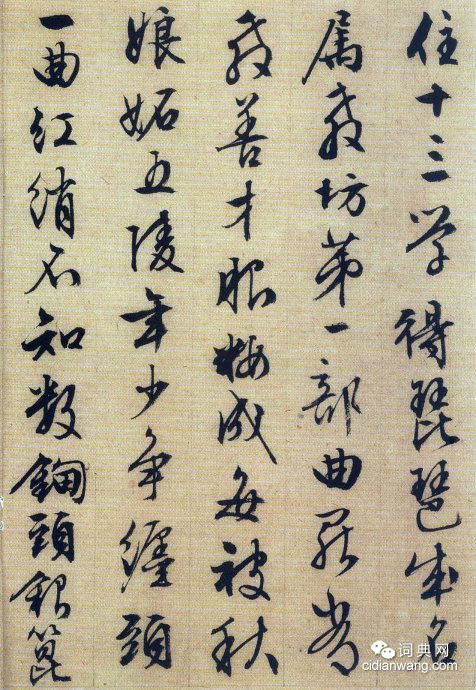 住十三学得琵琶成名
属教坊第一部曲罷常
教善才服粧成每被秋
娘妬五陵年少争纏頭
一曲紅綃不知数鈿頭銀篦
词典网
cidianwang.com